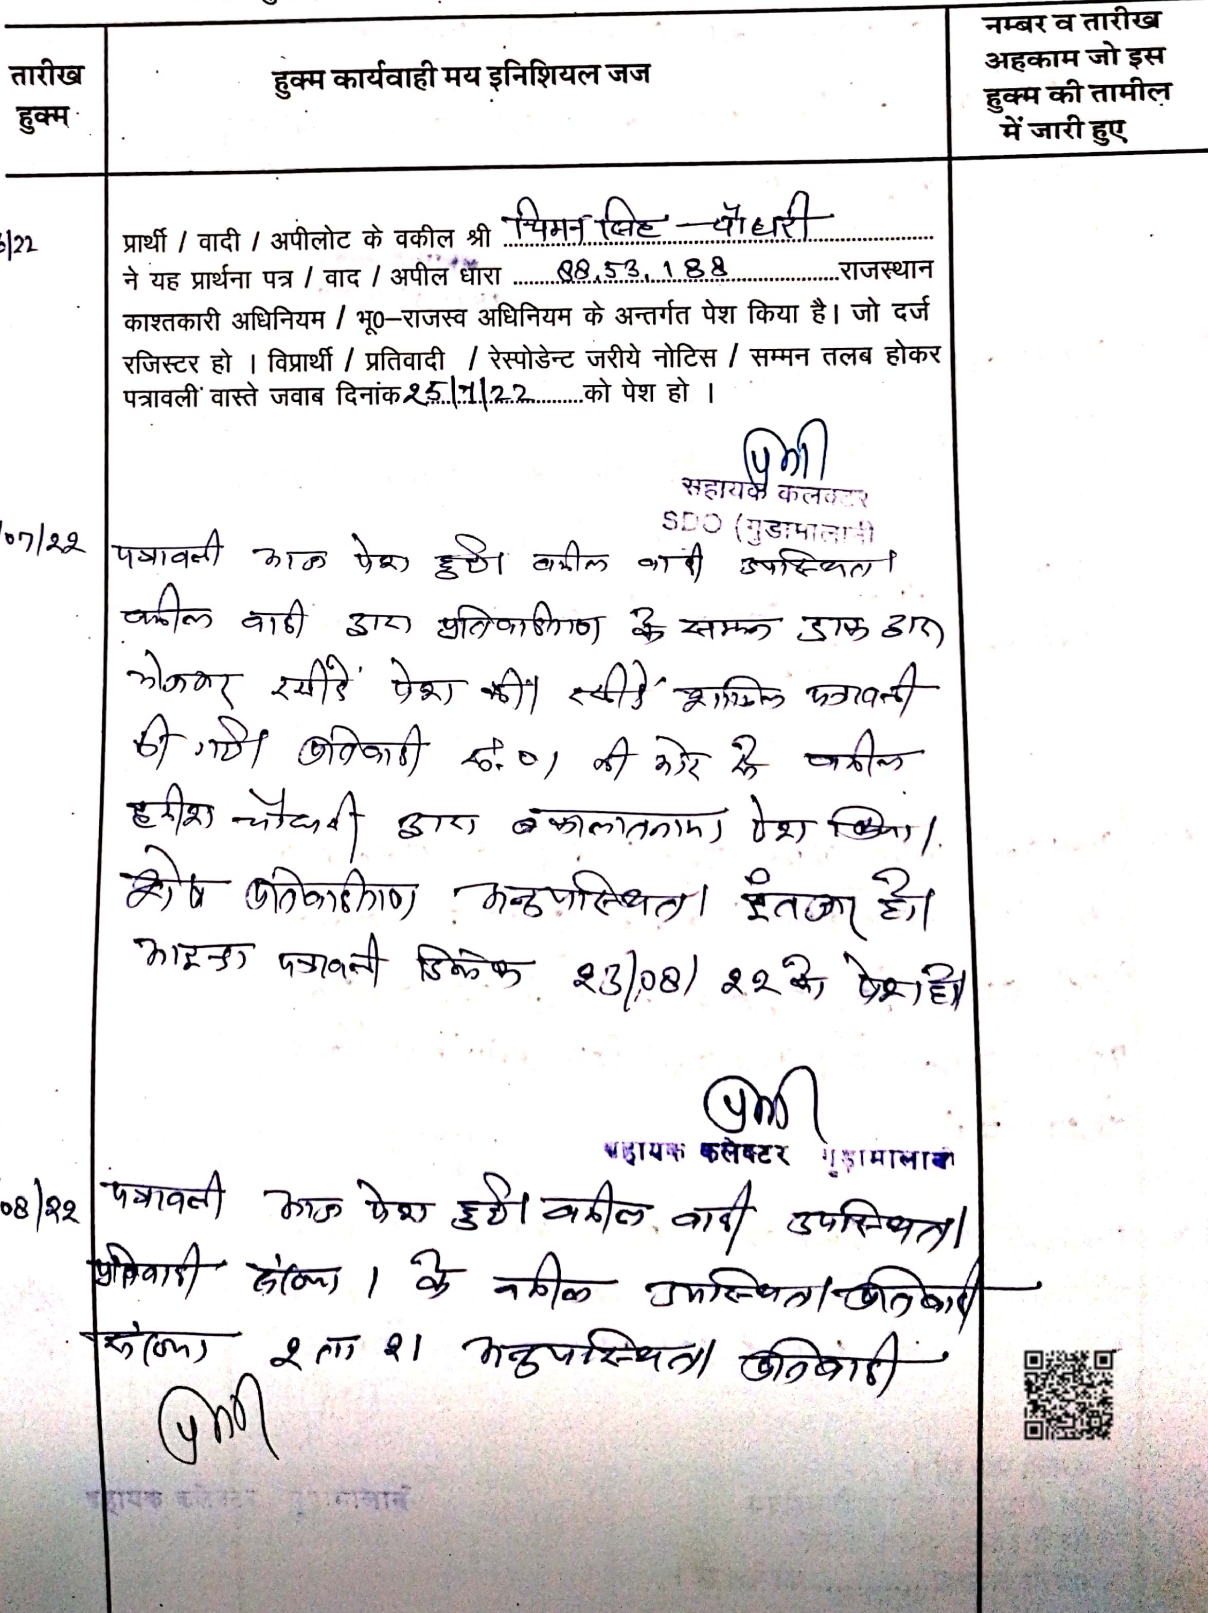 तारीख
हुक्म
हुक्म कार्यवाही मय इनिशियल जज
नम्बर व तारीख
अहकाम जो इस
हुक्म की तामील
में जारी हुए
/22
प्रार्थी / वादी / अपीलोट के वकील श्री चिमन सिंह चौधरी
ने यह प्रार्थना पत्र / वाद / अपील धारा 88,53,188 राजस्थान
काश्तकारी अधिनियम / भू0-राजस्व अधिनियम के अन्तर्गत पेश किया है। जो दर्ज
रजिस्टर हो । विप्रार्थी / प्रतिवादी / रेस्पोडेन्ट जरीये नोटिस / सम्मन तलब होकर
पत्रावली वास्ते जवाब दिनांक 25/7/22 को पेश हो ।
सहायक कलक्टर
SDO (गुडामालानी)
/07/22 पत्रावली आज पेश हुई। वकील वादी उपस्थित।
वकील वादी द्वारा प्रतिवादीगण के सम्मन डाक द्वारा
भेजकर रसीदें पेश की। रसीदें शामिल पत्रावली
की गयी। प्रतिवादी सं. 01 की ओर से वकील
हरीश चौधरी द्वारा वकालतनामा पेश किया।
शेष प्रतिवादीगण अनुपस्थित। इंतजार है।
आइन्दा पत्रावली दिनांक 23/08/22 को पेश हो।
सहायक कलेक्टर गुडामालानी
08/22 पत्रावली आज पेश हुई। वकील वादी उपस्थित।
प्रतिवादी संख्या 1 के वकील उपस्थित। प्रतिवादी
संख्या 2 ता 21 अनुपस्थित। प्रतिवादी
सहायक कलेक्टर गुडामालानी